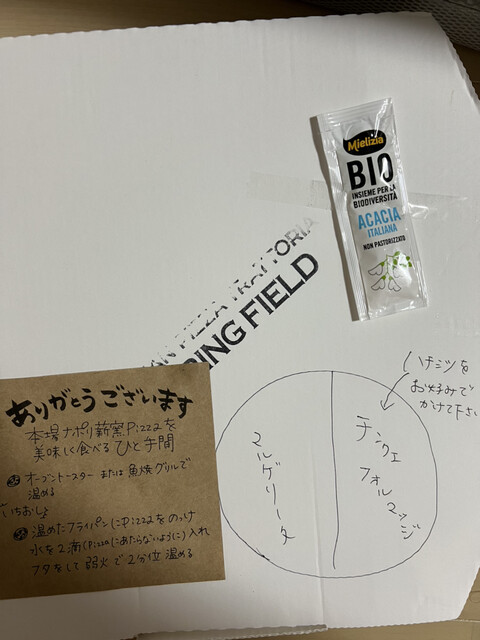 Mielizia
BIO
INSIEME PER LA
BIODIVERSITÀ
ACACIA
ITALIANA
NON PASTORIZZATO
PIZZA TRATTORIA
RING FIELD
ハチミツを
お好みで
かけて下さい
チンクェ
フォルマッジ
マルゲリータ
ありがとうございます
本場ナポリ薪窯Pizzaを
美味しく食べるひと手間
オーブントースター または 魚焼グリルで
温める
いちおし
温めたフライパンにPizzaをのっけ
水を2滴(Pizzaにあたらないように)入れ
フタをして弱火で2分位温める